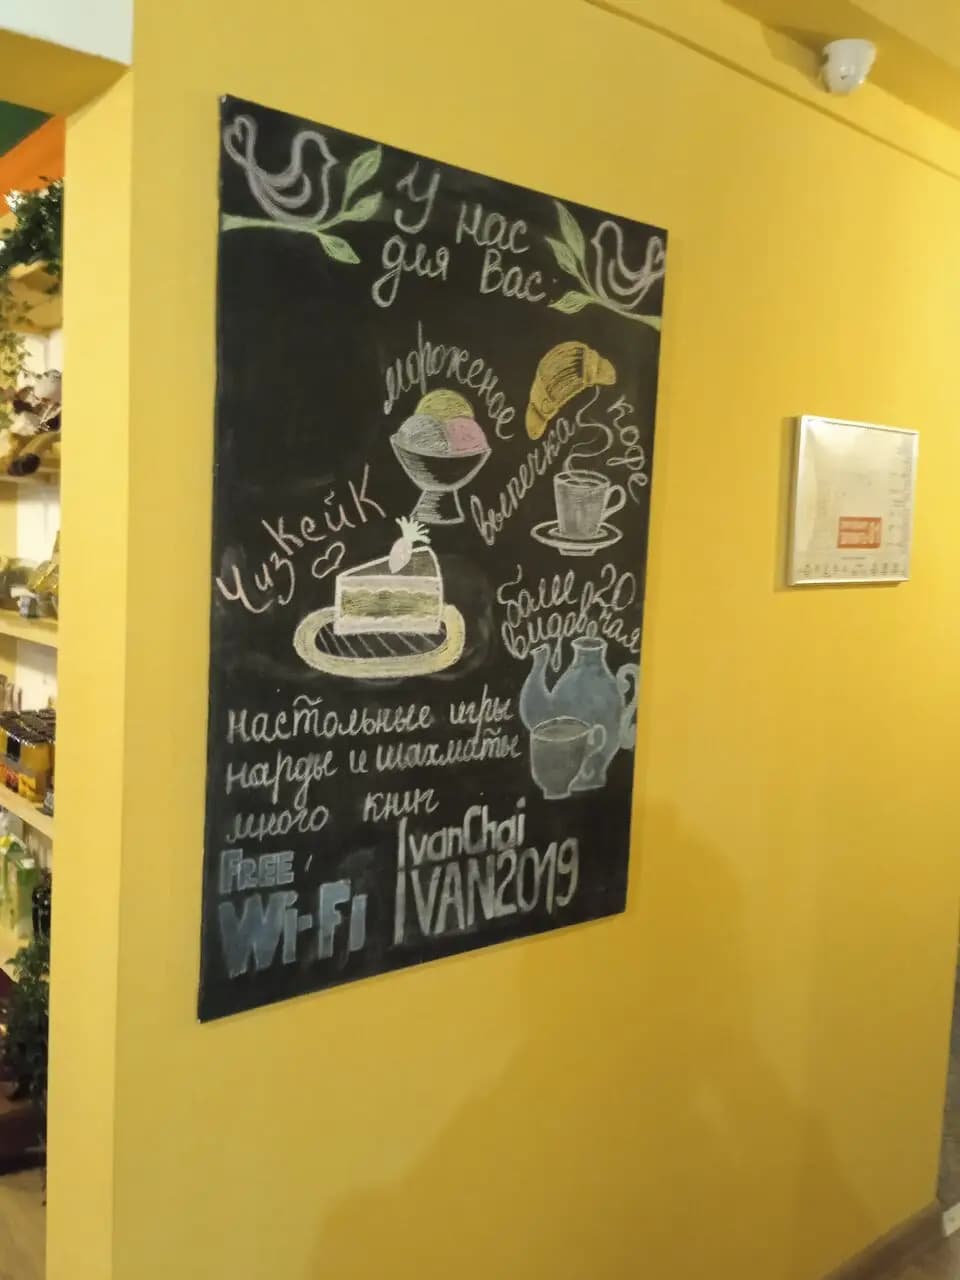 У нас
для Вас:
мороженое
выпечка
кофе
Чизкейк
более 20
видов чая
настольные игры
нарды и шахматы
много книг
FREE
Wi-Fi
IvanChai
IVAN2019